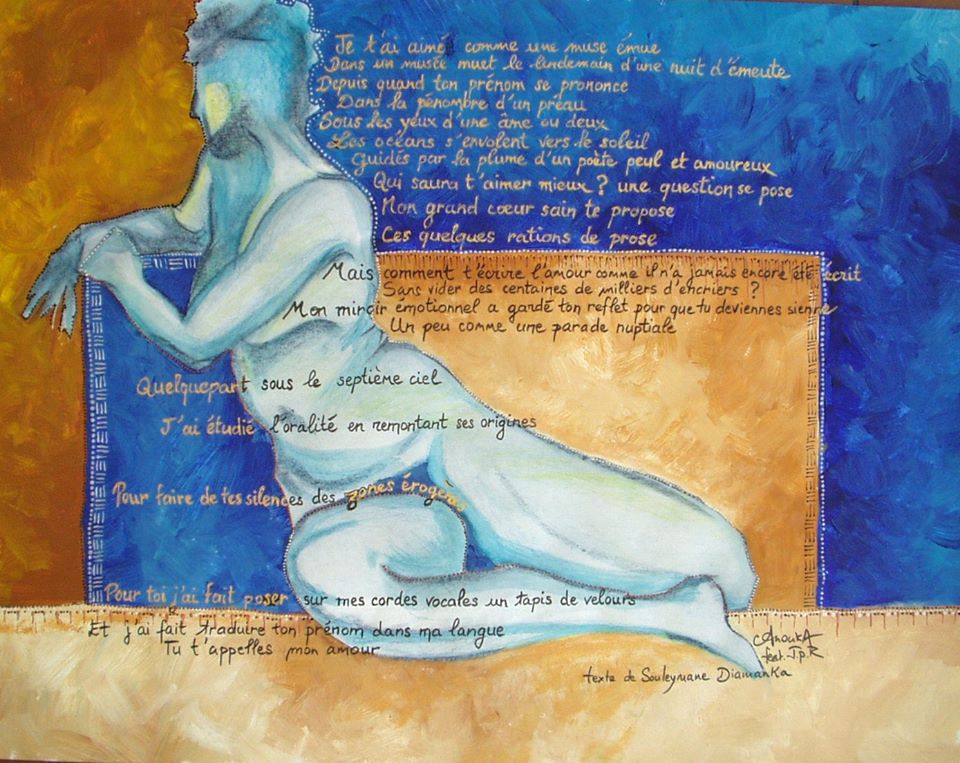 Je t'ai aimé comme une muse émue
Dans un musée muet le lendemain d'une nuit d'émeute
Depuis quand ton prénom se prononce
Dans la pénombre d'un préau
Sous les yeux d'une âme ou deux
Les océans s'envolent vers le soleil
Guidés par la plume d'un poète peul et amoureux
Qui saura t'aimer mieux ? une question se pose
Mon grand cœur sain te propose
Ces quelques rations de prose
Mais comment t'écrire l'amour comme il n'a jamais encore été écrit
Sans vider des centaines de milliers d'encriers ?
Mon miroir émotionnel a gardé ton reflet pour que tu deviennes sienne
Un peu comme une parade nuptiale
Quelquepart sous le septième ciel
J'ai étudié l'oralité en remontant ses origines
Pour faire de tes silences des zones érogènes
Pour toi j'ai fait poser sur mes cordes vocales un tapis de velours
Et j'ai fait traduire ton prénom dans ma langue
Tu t'appelles mon amour
AnoukA
feat. J.p.R
texte de Souleymane Diamanka